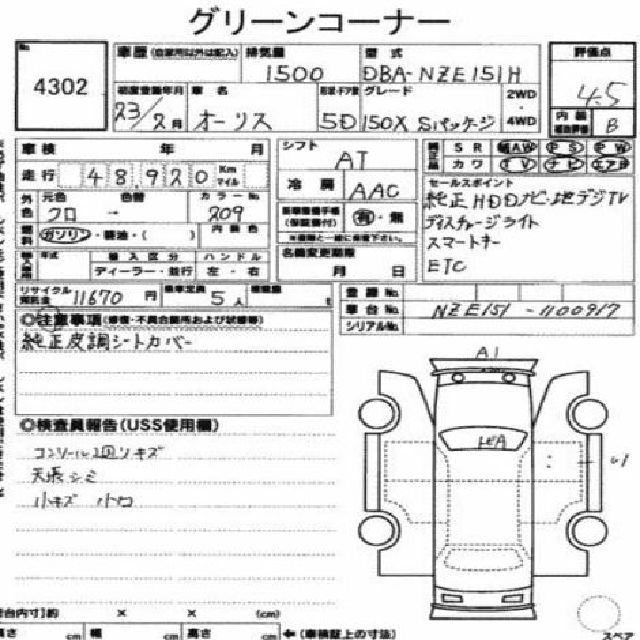 グリーンコーナー
No. 4302
車歴 (自家用以外は記入)
排気量 1500
型式 DBA-NZE151H
評価点 4.5
初度登録年月 23/2月
車名 オーリス
形状・ドア数 5D
グレード 150X Sパッケージ
2WD・4WD
内装 B
車検 年 月
シフト AT
SR AW PS PW
カワ TV ナビ エアB
走行 48,920 Km マイル
冷房 AAC
セールスポイント
純正HDDナビ・地デジTV
ディスチャージライト
スマートキー
ETC
外色 元色 クロ → 色替 カラーNo. 209
有・無
燃料 ガソリン・軽油・( ) 内装色
名義変更期限 月 日
年式 輸入区分 ハンドル
ディーラー・並行 左・右
リサイクル預託金 11670円
乗車定員 5人
積載量 t
登録No.
車台No. NZE151-1100917
シリアルNo.
◎注意事項(修復・不具合箇所および状態等)
純正皮調シートカバー
A1
◎検査員報告(USS使用欄)
コンソール上回りキズ
天張シミ
小キズ 小凹
U1
【荷台内寸】約 × × (cm)
長さ cm 幅 cm 高さ cm ←(車検証上の寸法)
スペア